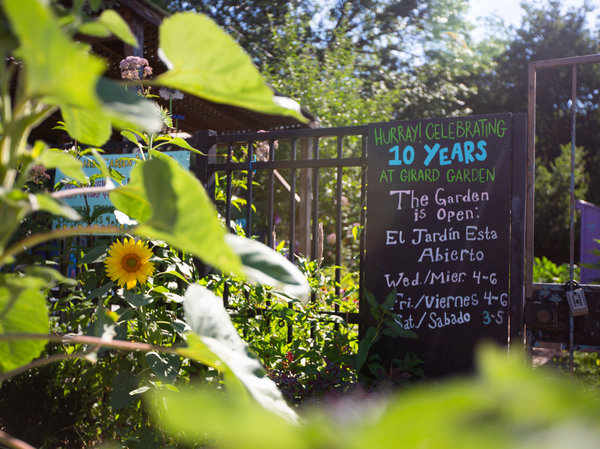 HURRAY! CELEBRATING
10 YEARS
AT GIRARD GARDEN
The Garden
is Open:
El Jardín Esta
Abierto
Wed./Mier 4-6
Fri/Viernes 4-6
Sat/Sabado 3-5